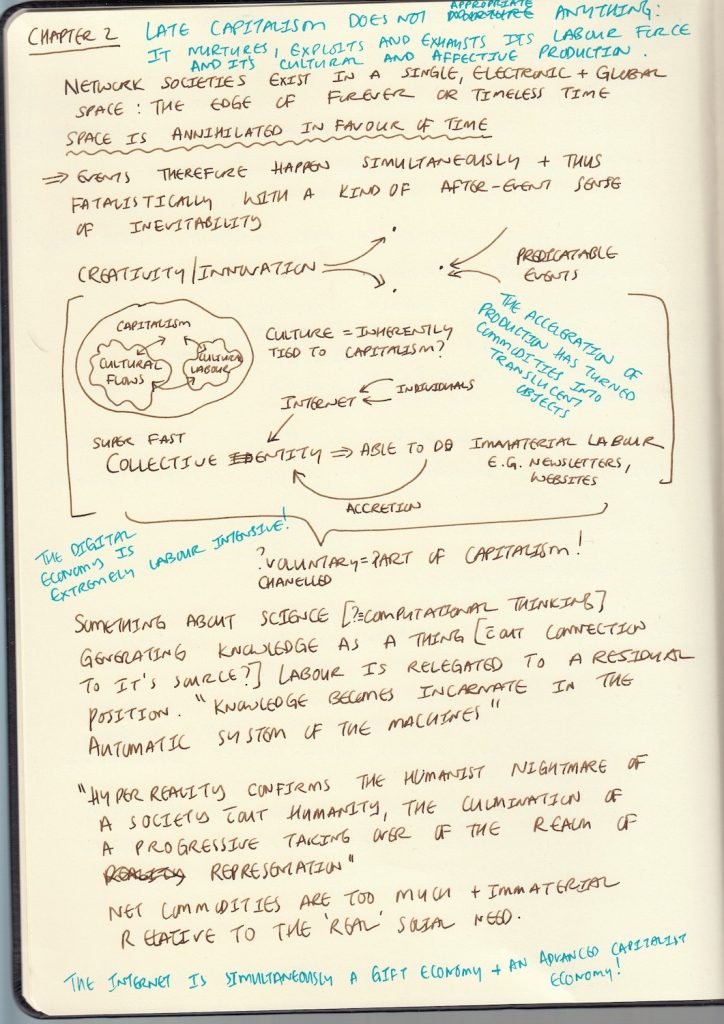 CHAPTER 2
LATE CAPITALISM DOES NOT APPROPRIATE ANYTHING:
IT NURTURES, EXPLOITS AND EXHAUSTS ITS LABOUR FORCE
AND IT'S CULTURAL AND AFFECTIVE PRODUCTION.
NETWORK SOCIETIES EXIST IN A SINGLE, ELECTRONIC + GLOBAL
SPACE: THE EDGE OF FOREVER OR TIMELESS TIME
SPACE IS ANNIHILATED IN FAVOUR OF TIME
⇒ EVENTS THEREFORE HAPPEN SIMULTANEOUSLY + THUS
FATALISTICALLY WITH A KIND OF AFTER-EVENT SENSE
OF INEVITABILITY
CREATIVITY/INNOVATION
PREDICATABLE
EVENTS
CAPITALISM
CULTURAL
FLOWS
CULTURAL
LABOUR
CULTURE = INHERENTLY
TIED TO CAPITALISM?
THE ACCELERATION OF
PRODUCTION HAS TURNED
COMMODITIES INTO
TRANSLUCENT
OBJECTS
INTERNET
INDIVIDUALS
SUPER FAST
COLLECTIVE IDENTITY ⇒ ABLE TO DO IMMATERIAL LABOUR
E.G. NEWSLETTERS,
WEBSITES
ACCRETION
THE DIGITAL
ECONOMY IS
EXTREMELY LABOUR INTENSIVE!
?VOLUNTARY = PART OF CAPITALISM!
CHANELLED
SOMETHING ABOUT SCIENCE [?=COMPUTATIONAL THINKING]
GENERATING KNOWLEDGE AS A THING [c̄OUT CONNECTION
TO IT'S SOURCE?] LABOUR IS RELEGATED TO A RESIDUAL
POSITION. "KNOWLEDGE BECOMES INCARNATE IN THE
AUTOMATIC SYSTEM OF THE MACHINES"
"HYPERREALITY CONFIRMS THE HUMANIST NIGHTMARE OF
A SOCIETY c̄OUT HUMANITY, THE CULMINATION OF
A PROGRESSIVE TAKING OVER OF THE REALM OF
REALITY REPRESENTATION"
NET COMMODITIES ARE TOO MUCH + IMMATERIAL
RELATIVE TO THE 'REAL' SOCIAL NEED.
THE INTERNET IS SIMULTANEOUSLY A GIFT ECONOMY + AN ADVANCED CAPITALIST
ECONOMY!